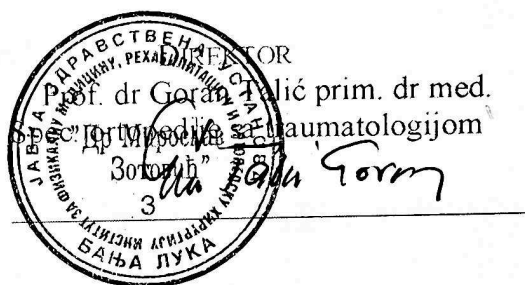 DIREKTOR
Prof. dr Goran Talić prim. dr med.
Spec. ortopedije sa traumatologijom
ЈАВНА ЗДРАВСТВЕНА УСТАНОВА
ИНСТИТУТ ЗА ФИЗИКАЛНУ МЕДИЦИНУ, РЕХАБИЛИТАЦИЈУ И ОРТОПЕДСКУ ХИРУРГИЈУ
"Др Мирослав
Зотовић"
3
БАЊА ЛУКА
Goran